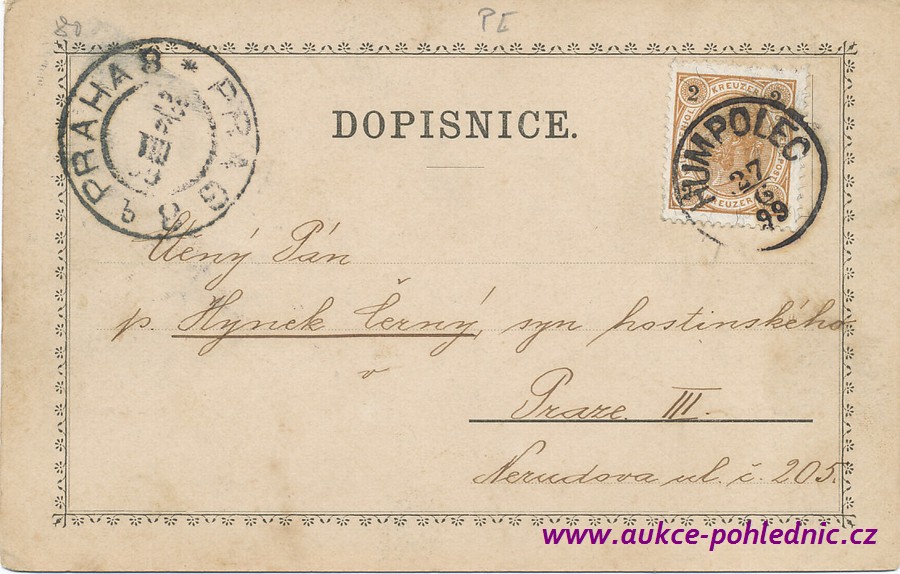 80
PE
PRAHA 8 * PRAG 8
DOPISNICE.
2 KREUZER 2
KREUZER
HUMPOLEC
27
6
99
Ctěný Pán
p. Hynek Černý, syn hostinského
v
Praze. III.
Nerudova ul. č. 205.
www.aukce-pohlednic.cz